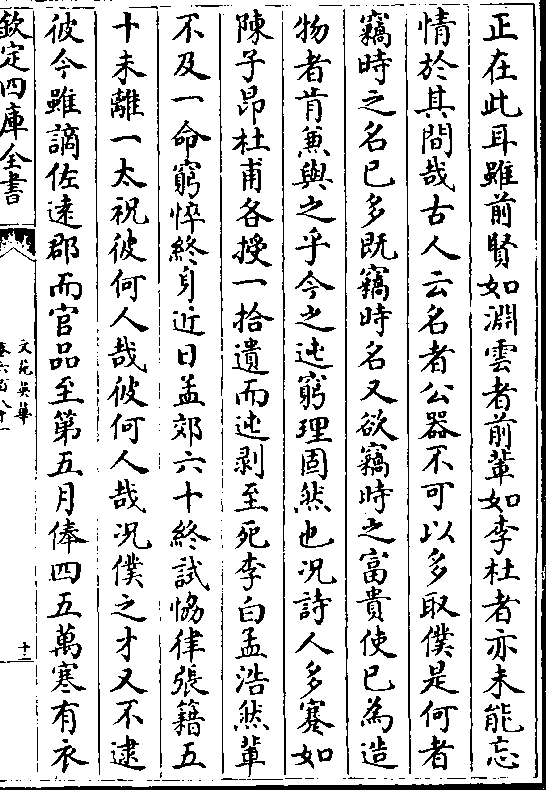 正在此耳雖前賢如淵雲者前輩如李杜者亦未能忘
情於其間哉古人云名者公器不可以多取僕是何者
竊時之名已多既竊時名又欲竊時之富貴使已為造
物者肯兼與之乎今之迍窮理固然也况詩人多蹇如
陳子昂杜甫各授一拾遺而迍剥至死李白孟浩然輩
不及一命窮悴終身近日孟郊六十終試恊律張籍五
十未離一太祝彼何人哉彼何人哉况僕之才又不逮
彼今雖謫佐逺郡而官品至第五月俸四五萬寒有衣
欽定四庫全書
文苑英華
卷六百八十一
十二